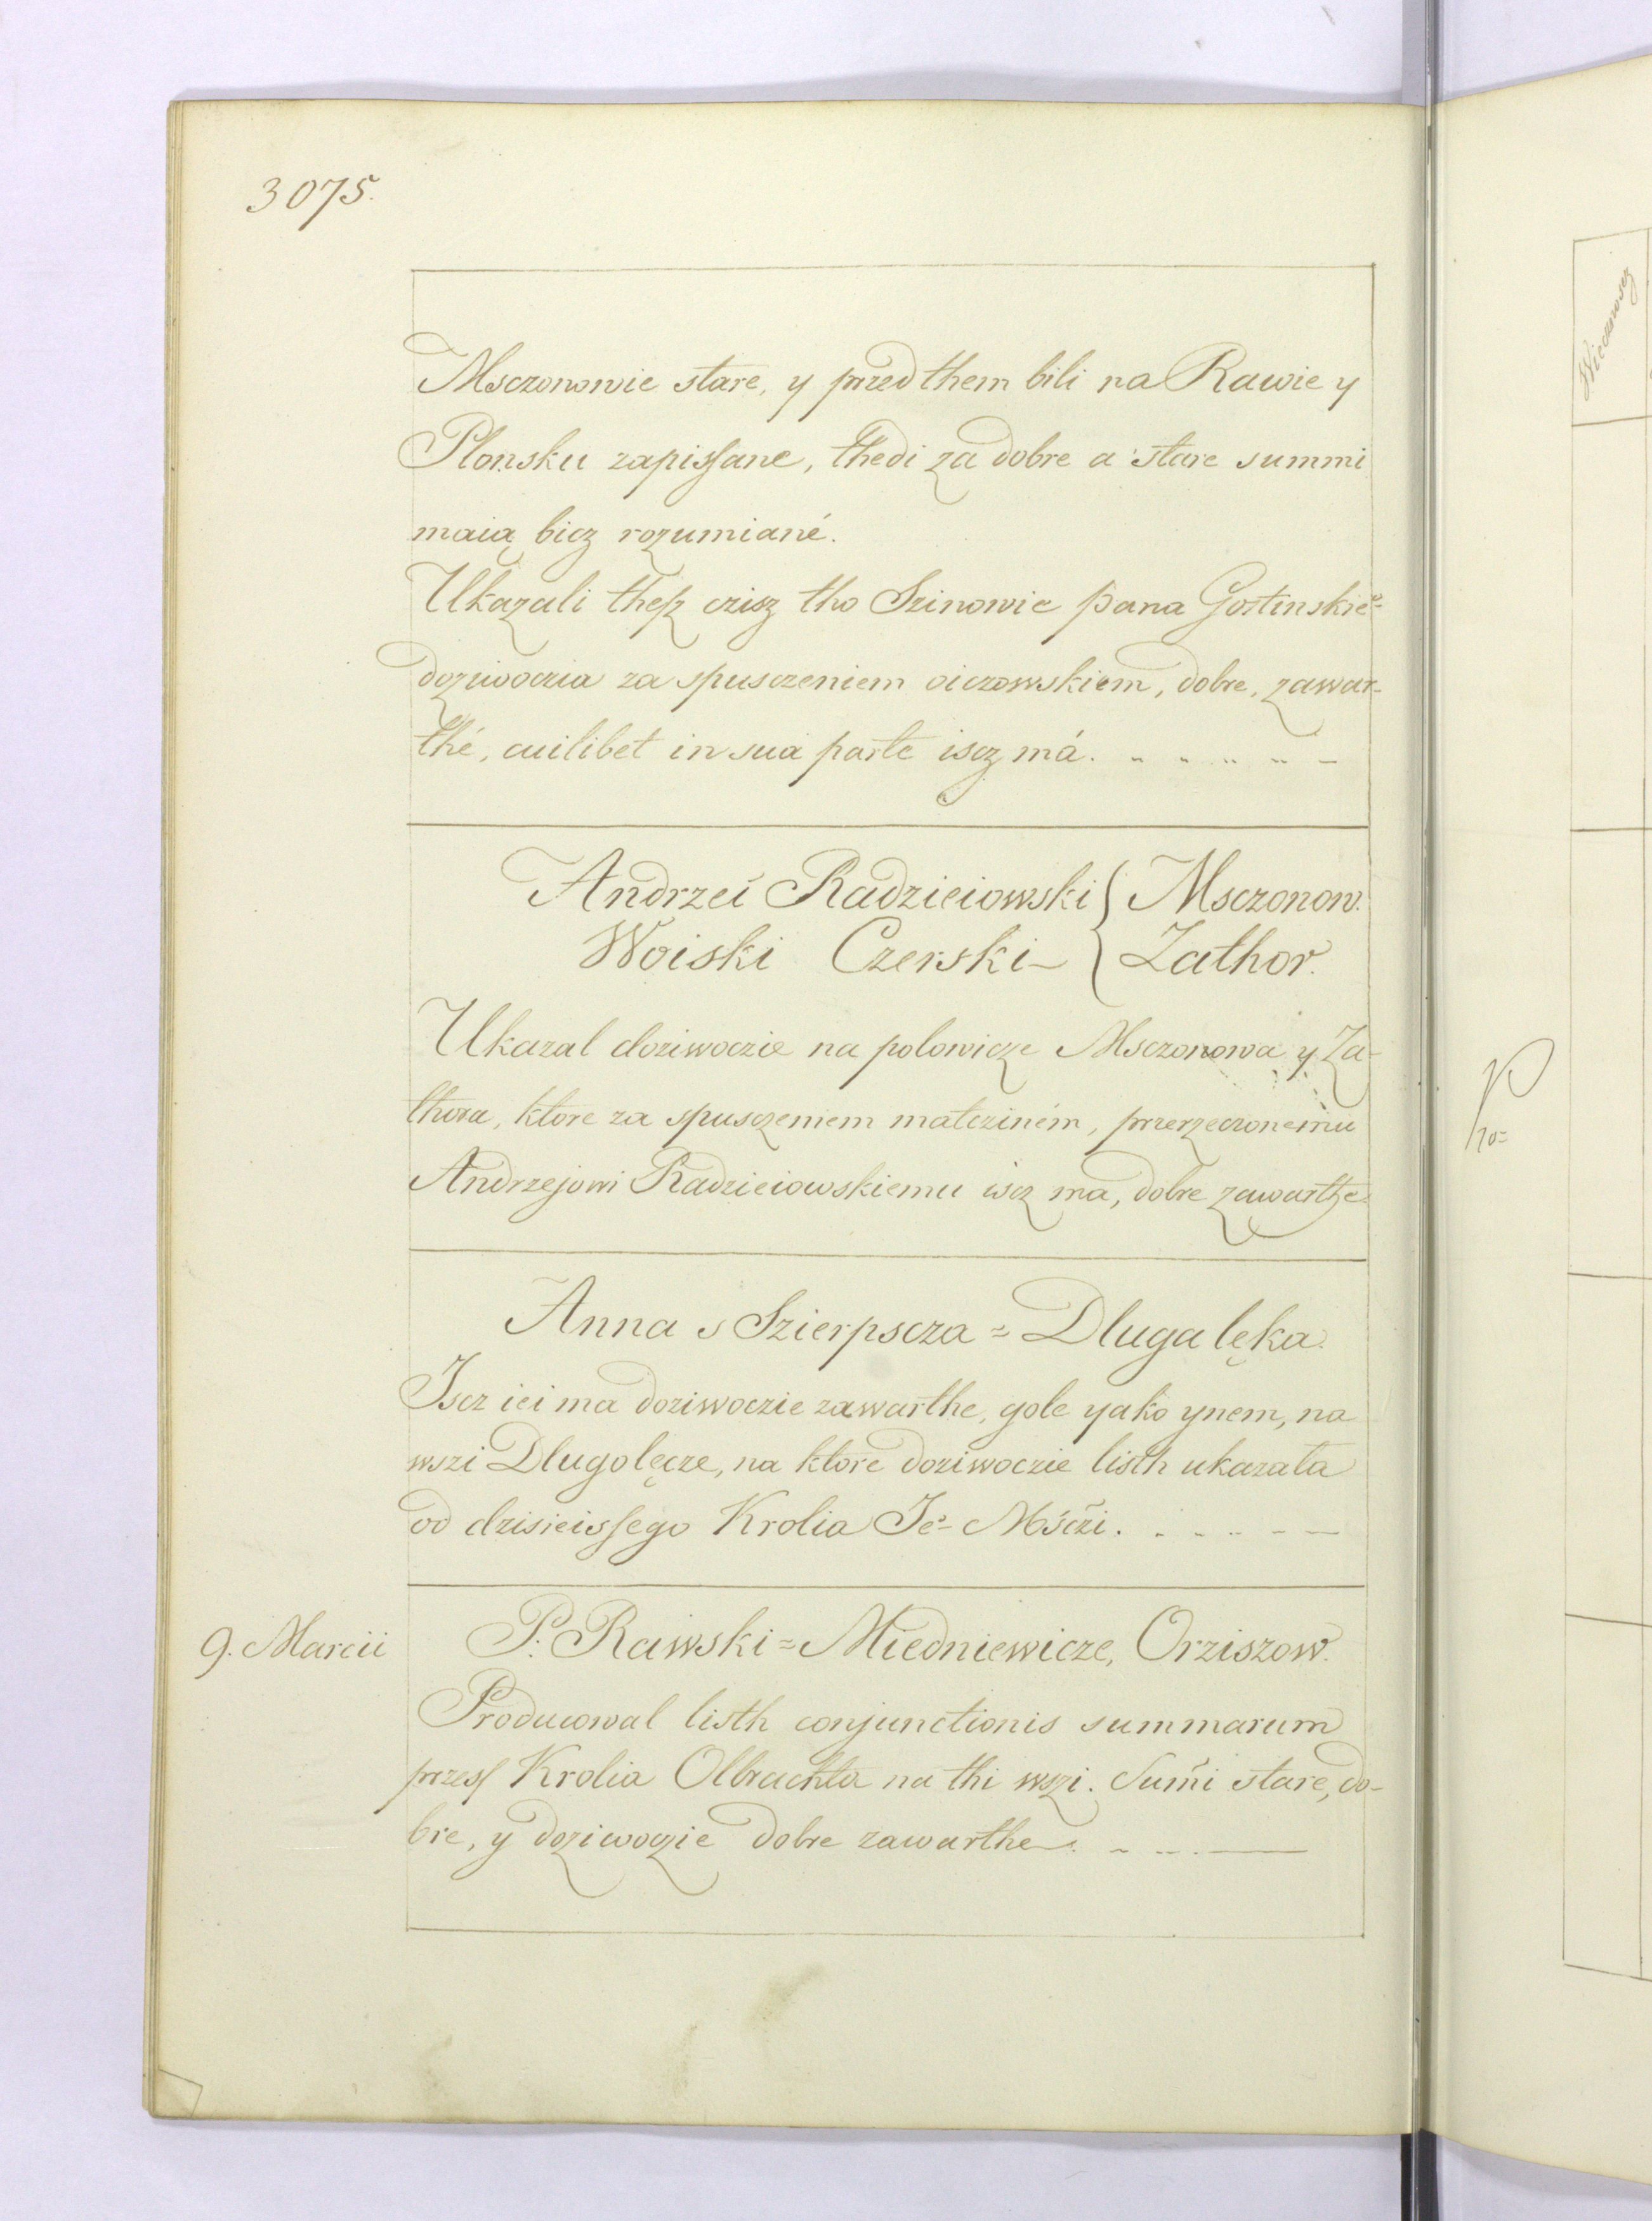 3075.
Msczonowie stare, y przed them bili na Rawie y
Plonsku zapisſane, thedi za dobre a stare summi
maią bicz rozumiané.
Ukazali theſz czisz tho Szinowie pana Gostinskieº-
doziwoczia za spusczeniem oiczowskiem, dobre, zawar-
thé, cuilibet in sua parte iscz má.
Andrzei Radzieiowski { Msczonow.
Woiski Czerski - { Zathor.
Ukazal doziwoczie na polowicze Msczonowa y Za-
thora, ktore za spusczeniem matcziném, przerzeczonemu
Andrzejowi Radzieiowskiemu iscz ma, dobre zawarthe.
Anna s Szierpscza = Dluga lęka.
Iscz iei ma doziwoczie zawarthe, gole yako ynem, na
wszi Dlugolęcze, na ktore doziwoczie listh ukazała
od dzisieisſego Krolia Jeº- Mśczi.
9. Marcii
P. Rawski = Miedniewicze, Orziszow.
Producowal listh conjunctionis summarum
przesſ Krolia Olbrachta na thi wszi. Sum̃i stare, do-
bre, y doziwoczie dobre zawarthe.